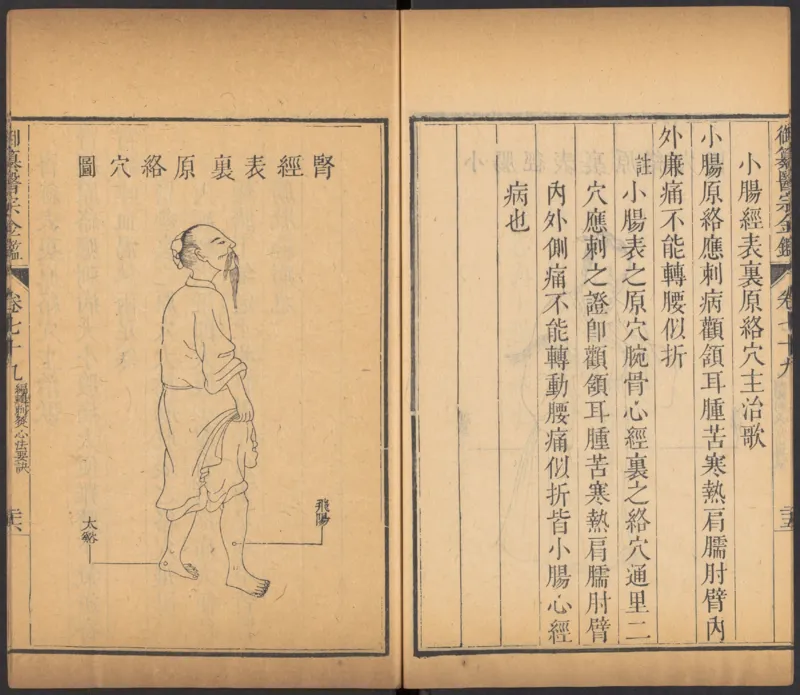 御纂醫宗金鑑
卷七十九
二十五
小腸經表裏原絡穴主治歌
小腸原絡應刺病顴頷耳腫苦寒熱肩臑肘臂內
外廉痛不能轉腰似折
註小腸表之原穴腕骨心經裏之絡穴通里二
穴應刺之證卽顴頷耳腫苦寒熱肩臑肘臂
內外側痛不能轉動腰痛似折皆小腸心經
病也
腎經表裏原絡穴圖
飛陽
太谿
御纂醫宗金鑑
卷七十九
編輯刺灸心法要訣
二十六